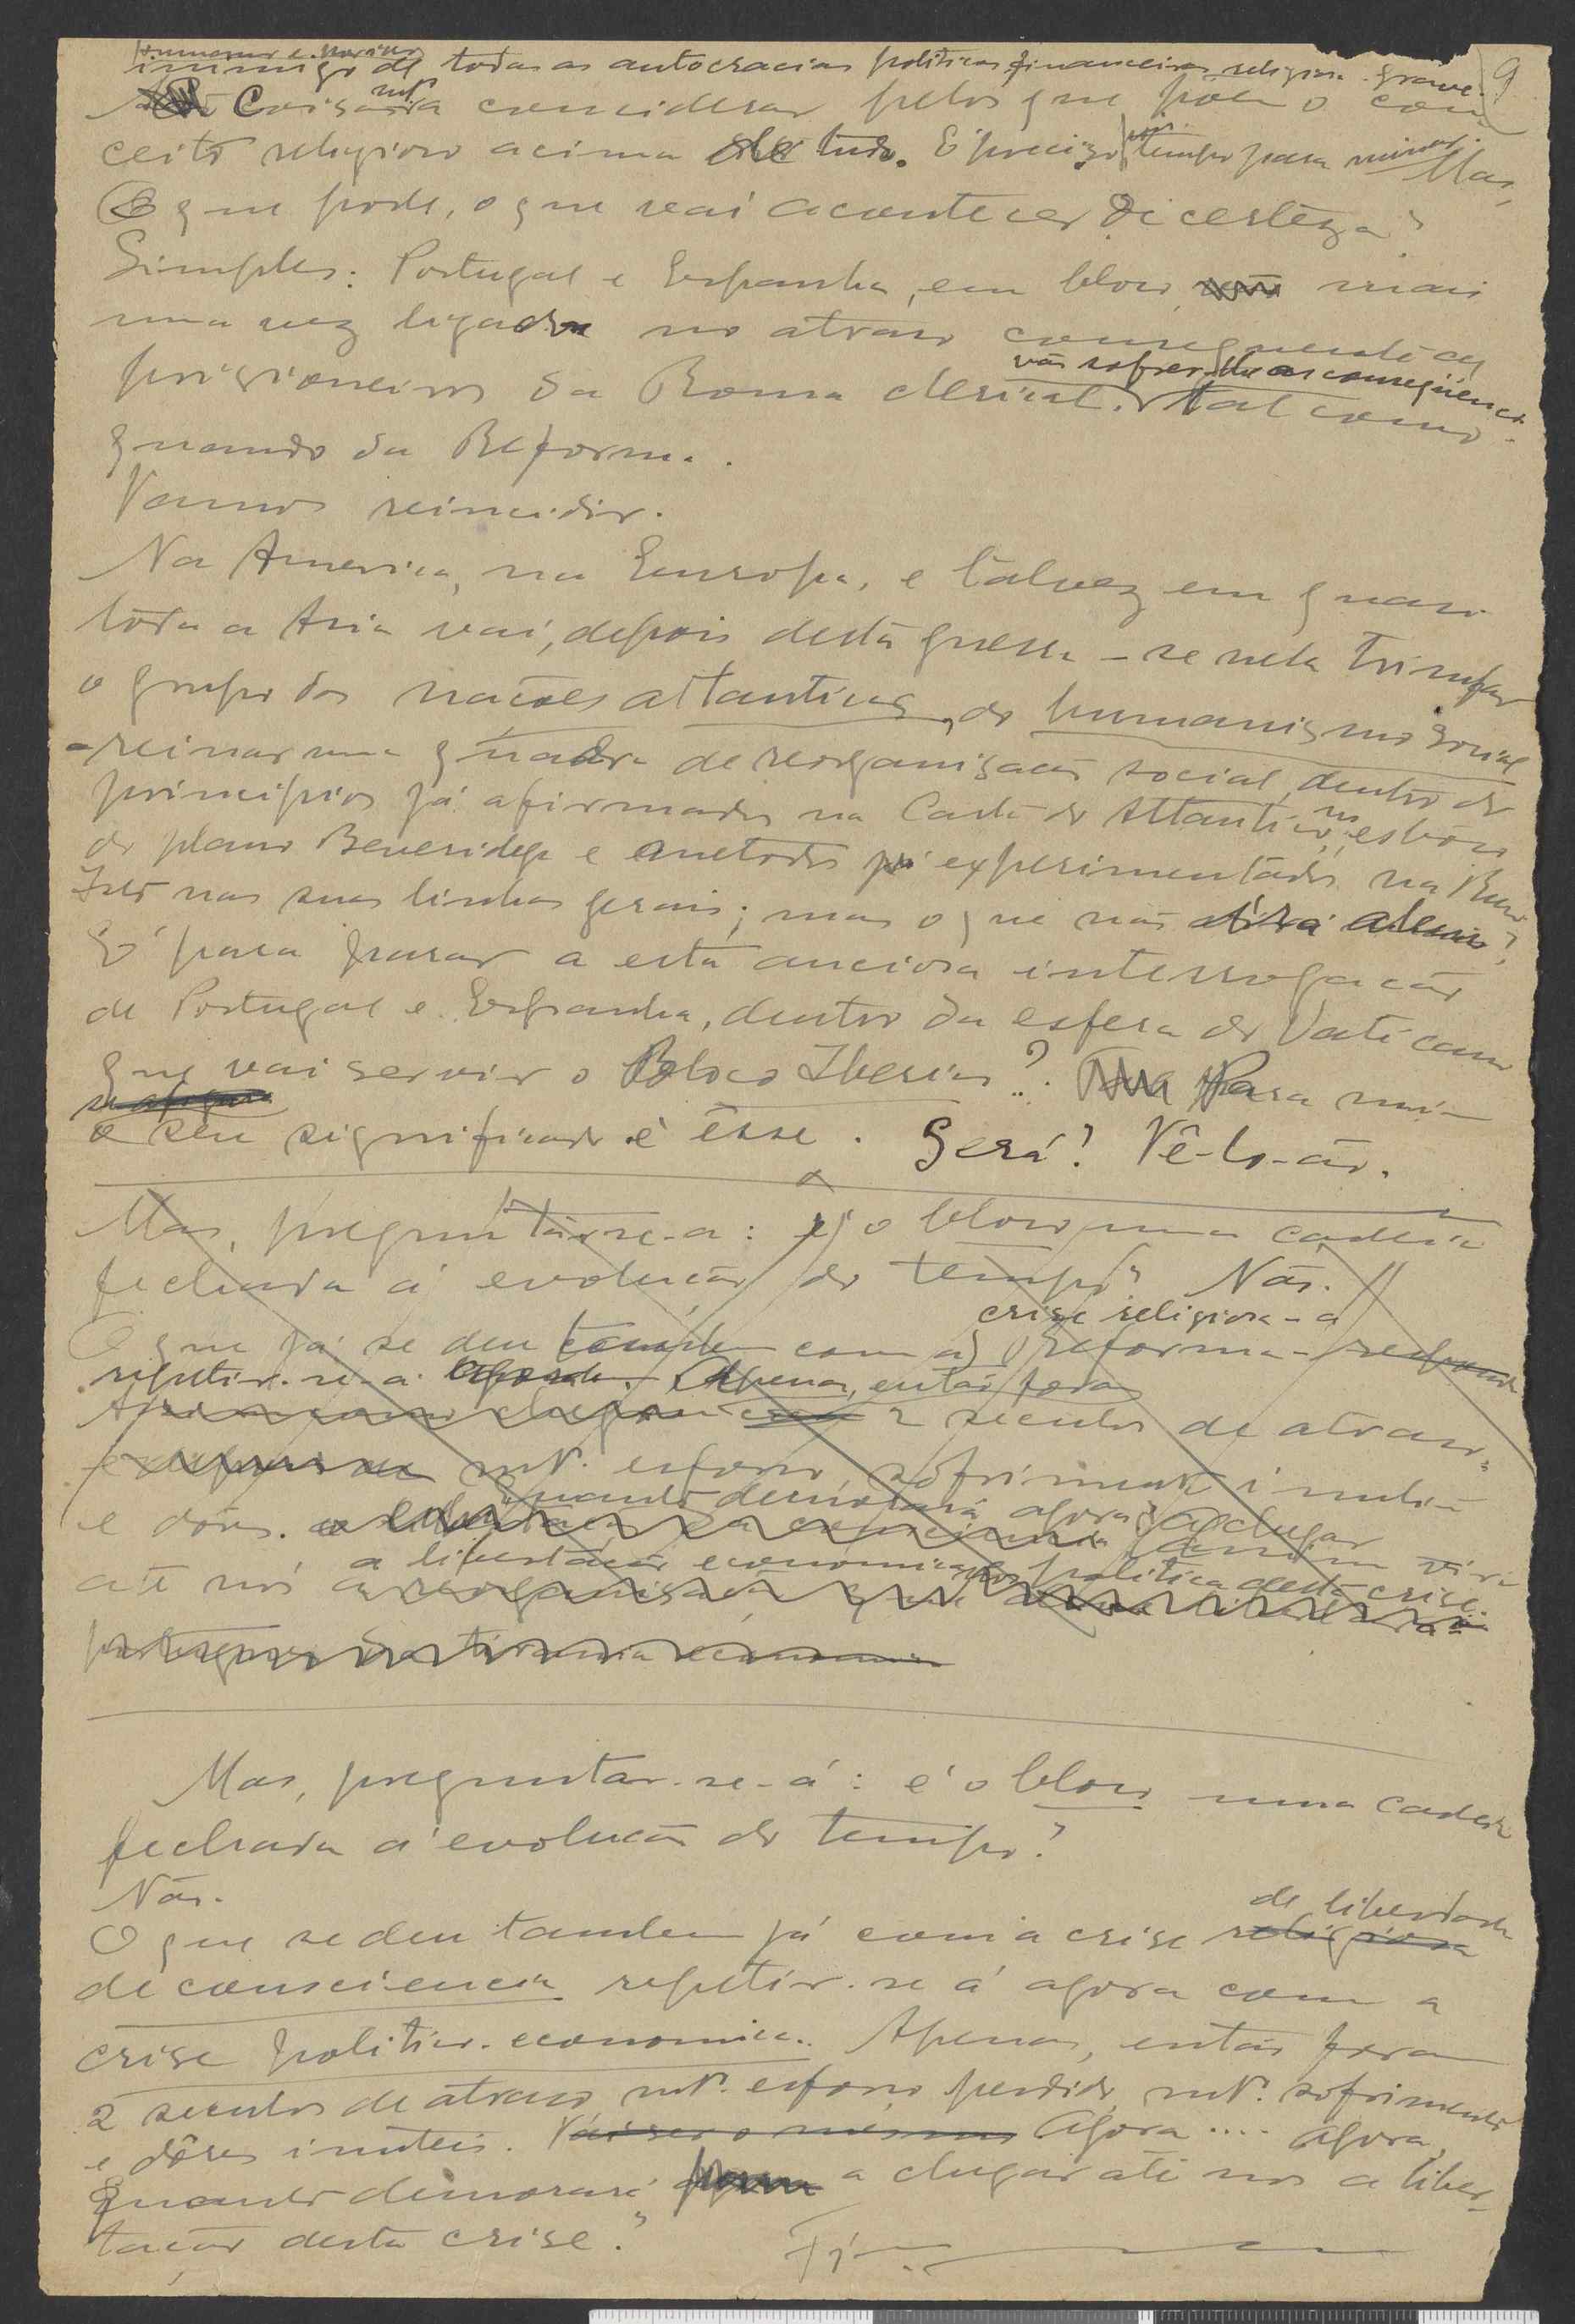 9
inimigo de todas as autocracias politicas financeiras religiosa. Grave.
Coisa mtº a conciderar pelos que põem o con
ceito religioso acima de tudo. É precizo, pois, tempo para minar. Mas,
O que pode, o que vai acontecer de certêza?
Simples: Portugal e Espanha, em bloco mais
uma vez ligados no atraso consequente de
prisioneiros da Roma clerical. vão sofrer-lhe as consequencias. Tal como
quando da Reforma.
Vamos reincidir.
Na America, na Europa, e talvez em quasi
toda a Asia vai, depois desta guerra - se nela triunfar
o grupo das nações atlanticas, do humanismo social
- reinar uma quadra de reorganisação social, dentro dos
principios já afirmados na Carta do Atlantico, no esbôço
do plano Beveridge e metodos já experimentados na Russia
Isto nas suas linhas gerais; mas o que não irá alem?
É para furar a esta anciosa interrogação
de Portugal e Espanha, dentro da esfera do Vaticano
que vai servir o Bloco Iberico? Para mim
o seu significado é êsse. Será? Vê-lo-ão.
Mas, preguntar-se-a: é o bloco uma cadeia
fechada á evolução do tempo? Não.
O que já se deu tambem com a crise religiosa - a Reforma -
repetir-se-a. Apenas, então foram
2 seculos de atraso,
mtº. esforço, sofrimento inutil
e dôres. Quanto demorará agora a chegar
até nós a libertação economica politica desta crise.
Mas, preguntar-se-á: é o bloco uma cadeia
fechada á evolução do tempo?
Não.
O que se deu tambem já com a crise religiosa de liberdade
de consciencia repetir-se á agora com a
crise politico-economica. Apenas, então foram
2 seculos de atraso, mtº. esforço perdido, mtº. sofrimento
e dôres inuteis. Vai ser o mesmo Agora.... Agora,
Quanto demorará a chegar até nos a liber-
tação desta crise?
Fim